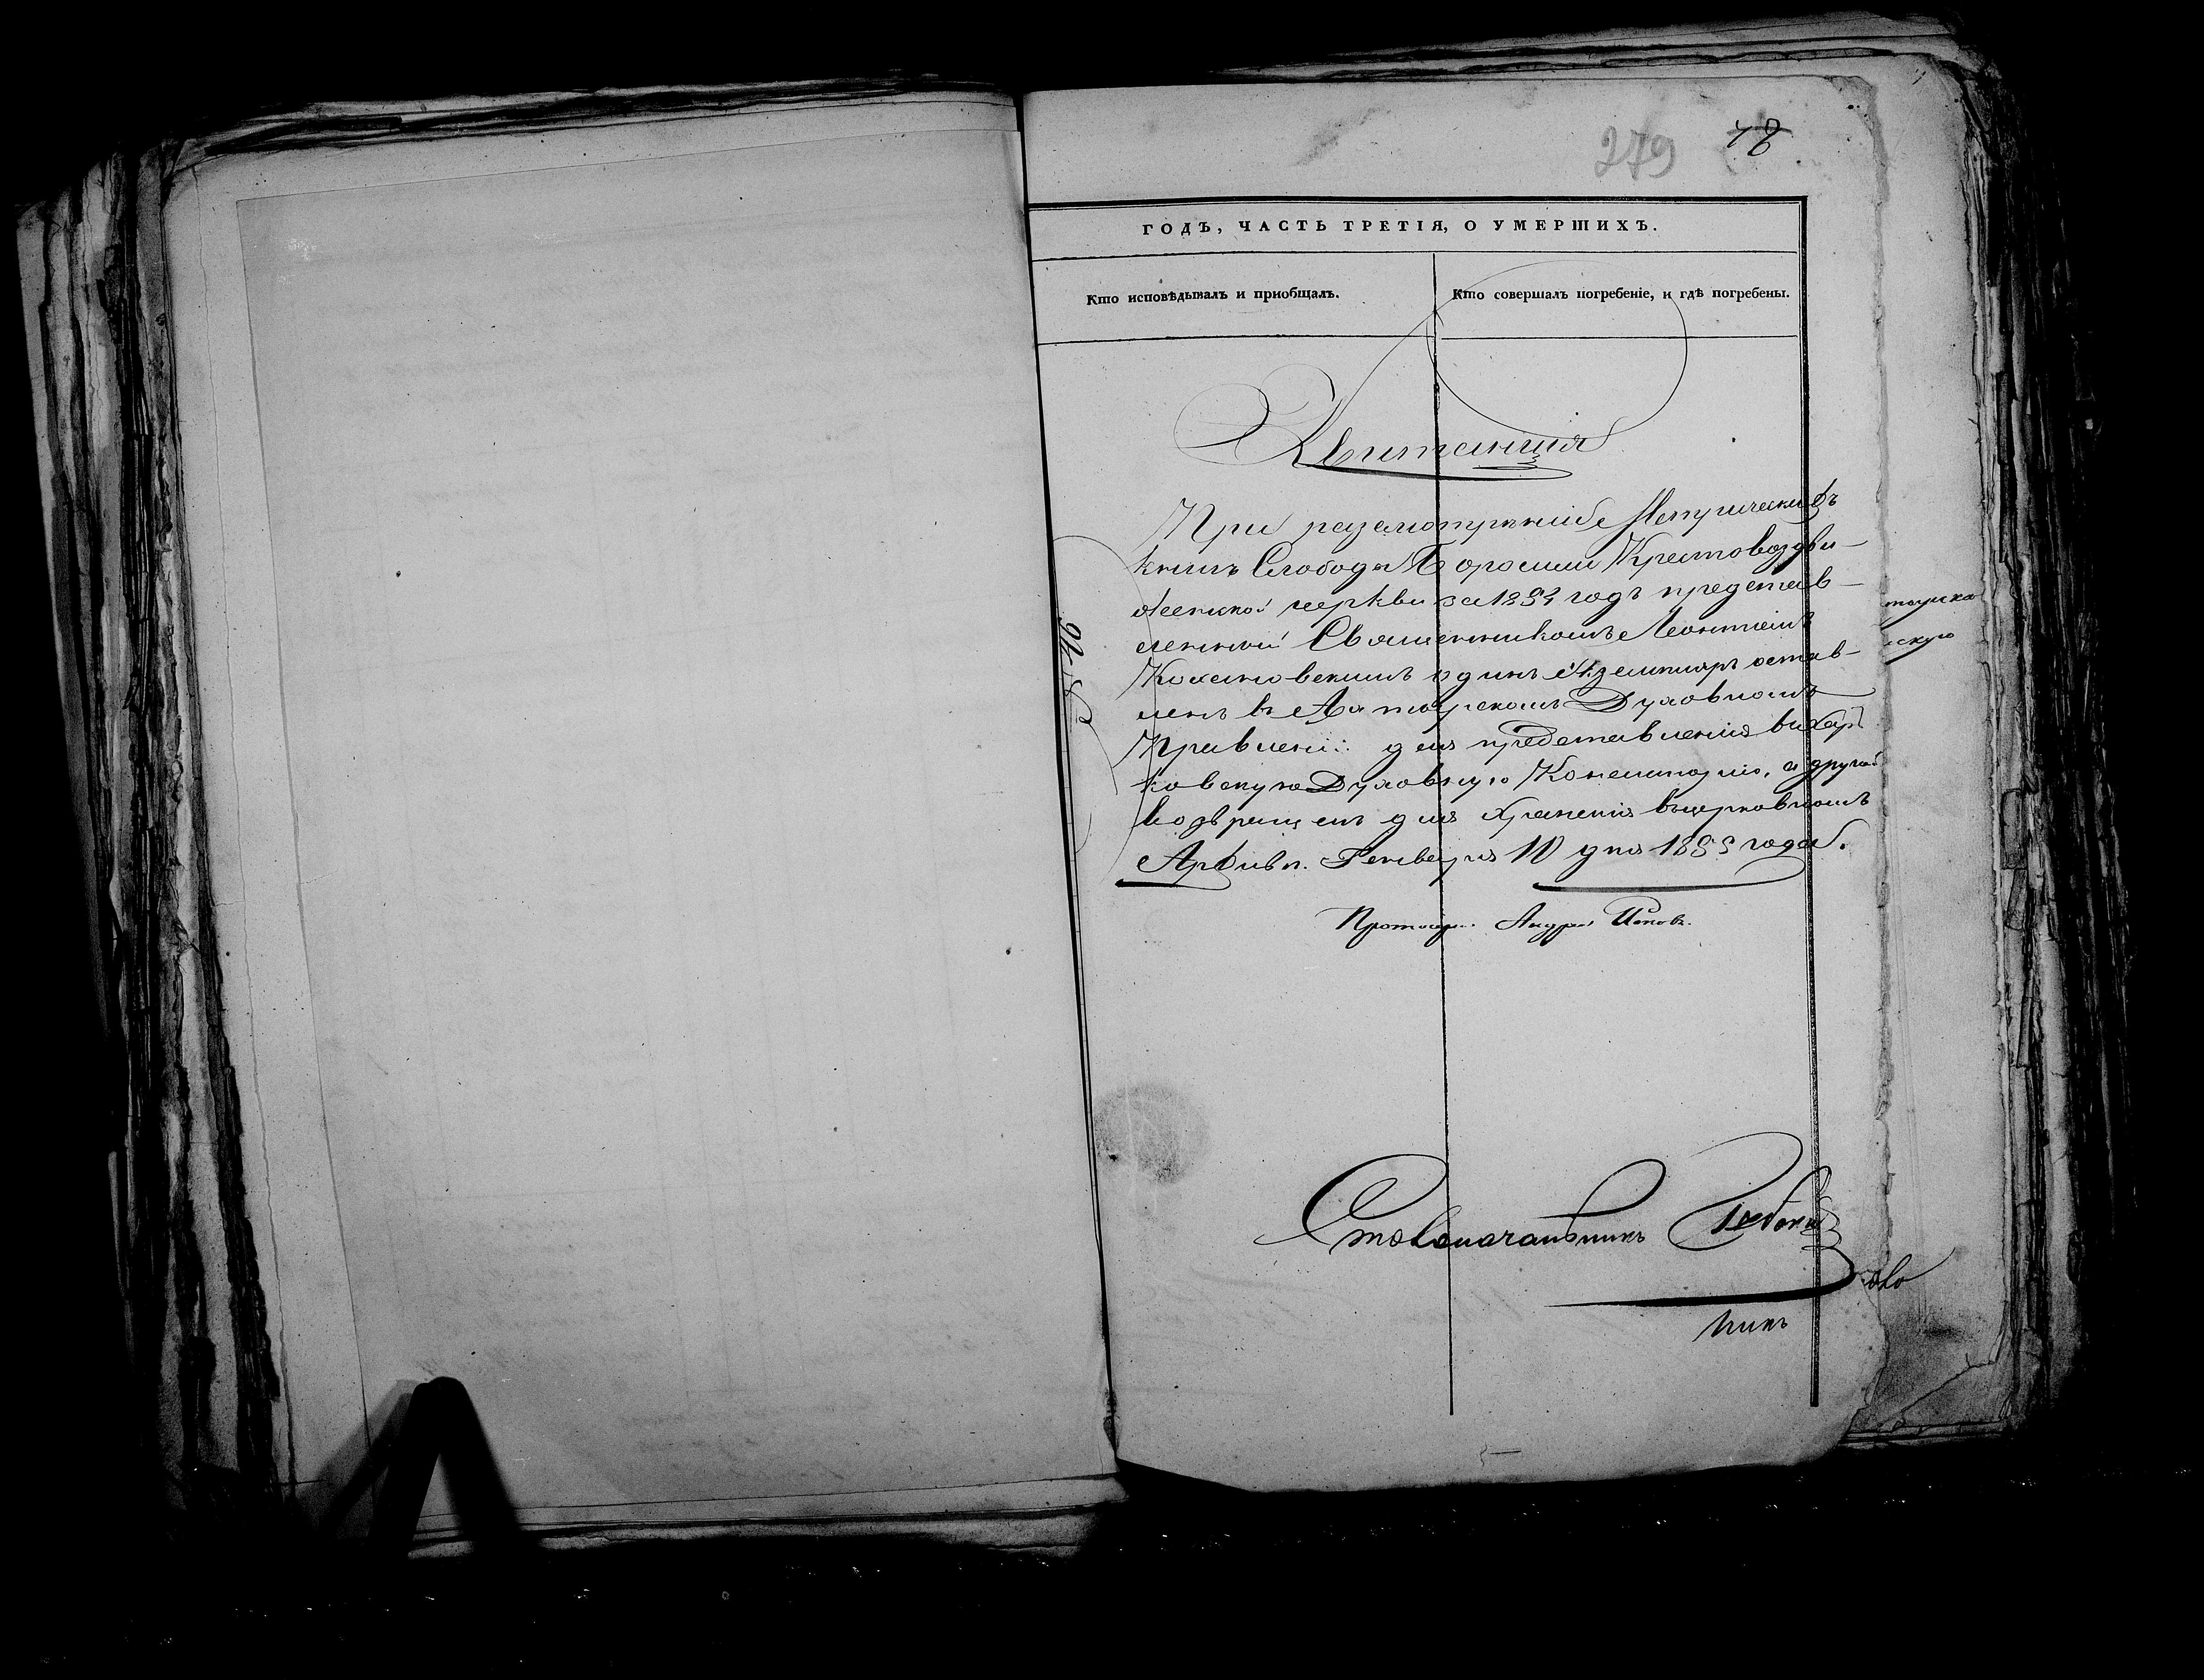 279 48
ГОДЪ, ЧАСТЬ ТРЕТІЯ, О УМЕРШИХЪ.
Кто исповѣдывалъ и приобщалъ.
Кто совершалъ погребеніе, и гдѣ погребены.
Квитанція
При разсмотрѣніи Метрическихъ
книгъ Слободы Боромли Крестовоздви-
женской церкви за годъ представ-
ленной Священникомъ Леонтіемъ
одинъ Экземпляръ остав-
ленъ въ Ахтырскомъ Духовномъ
Правленіи для представленія въ Харь
ковскую Духовную Консисторію, а другой
возвращенъ для храненія въ церковномъ
Архивѣ. Генваря 10 дня года.
Протоіерей Андрей
Столоначальникъ